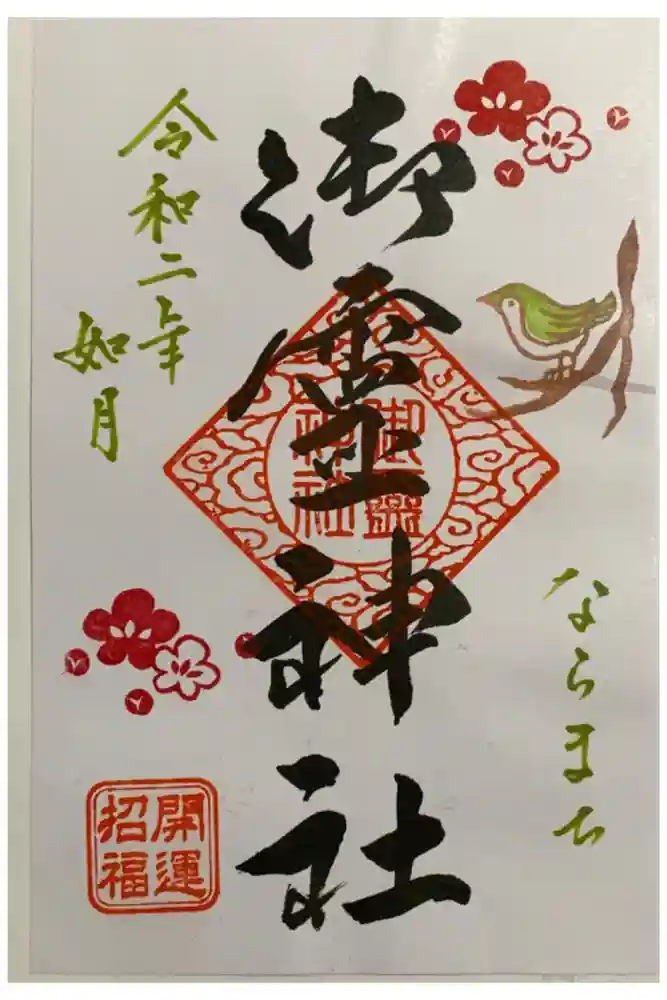 ならまち
御霊神社
御靈
神社
令和二年
如月
開運
招福